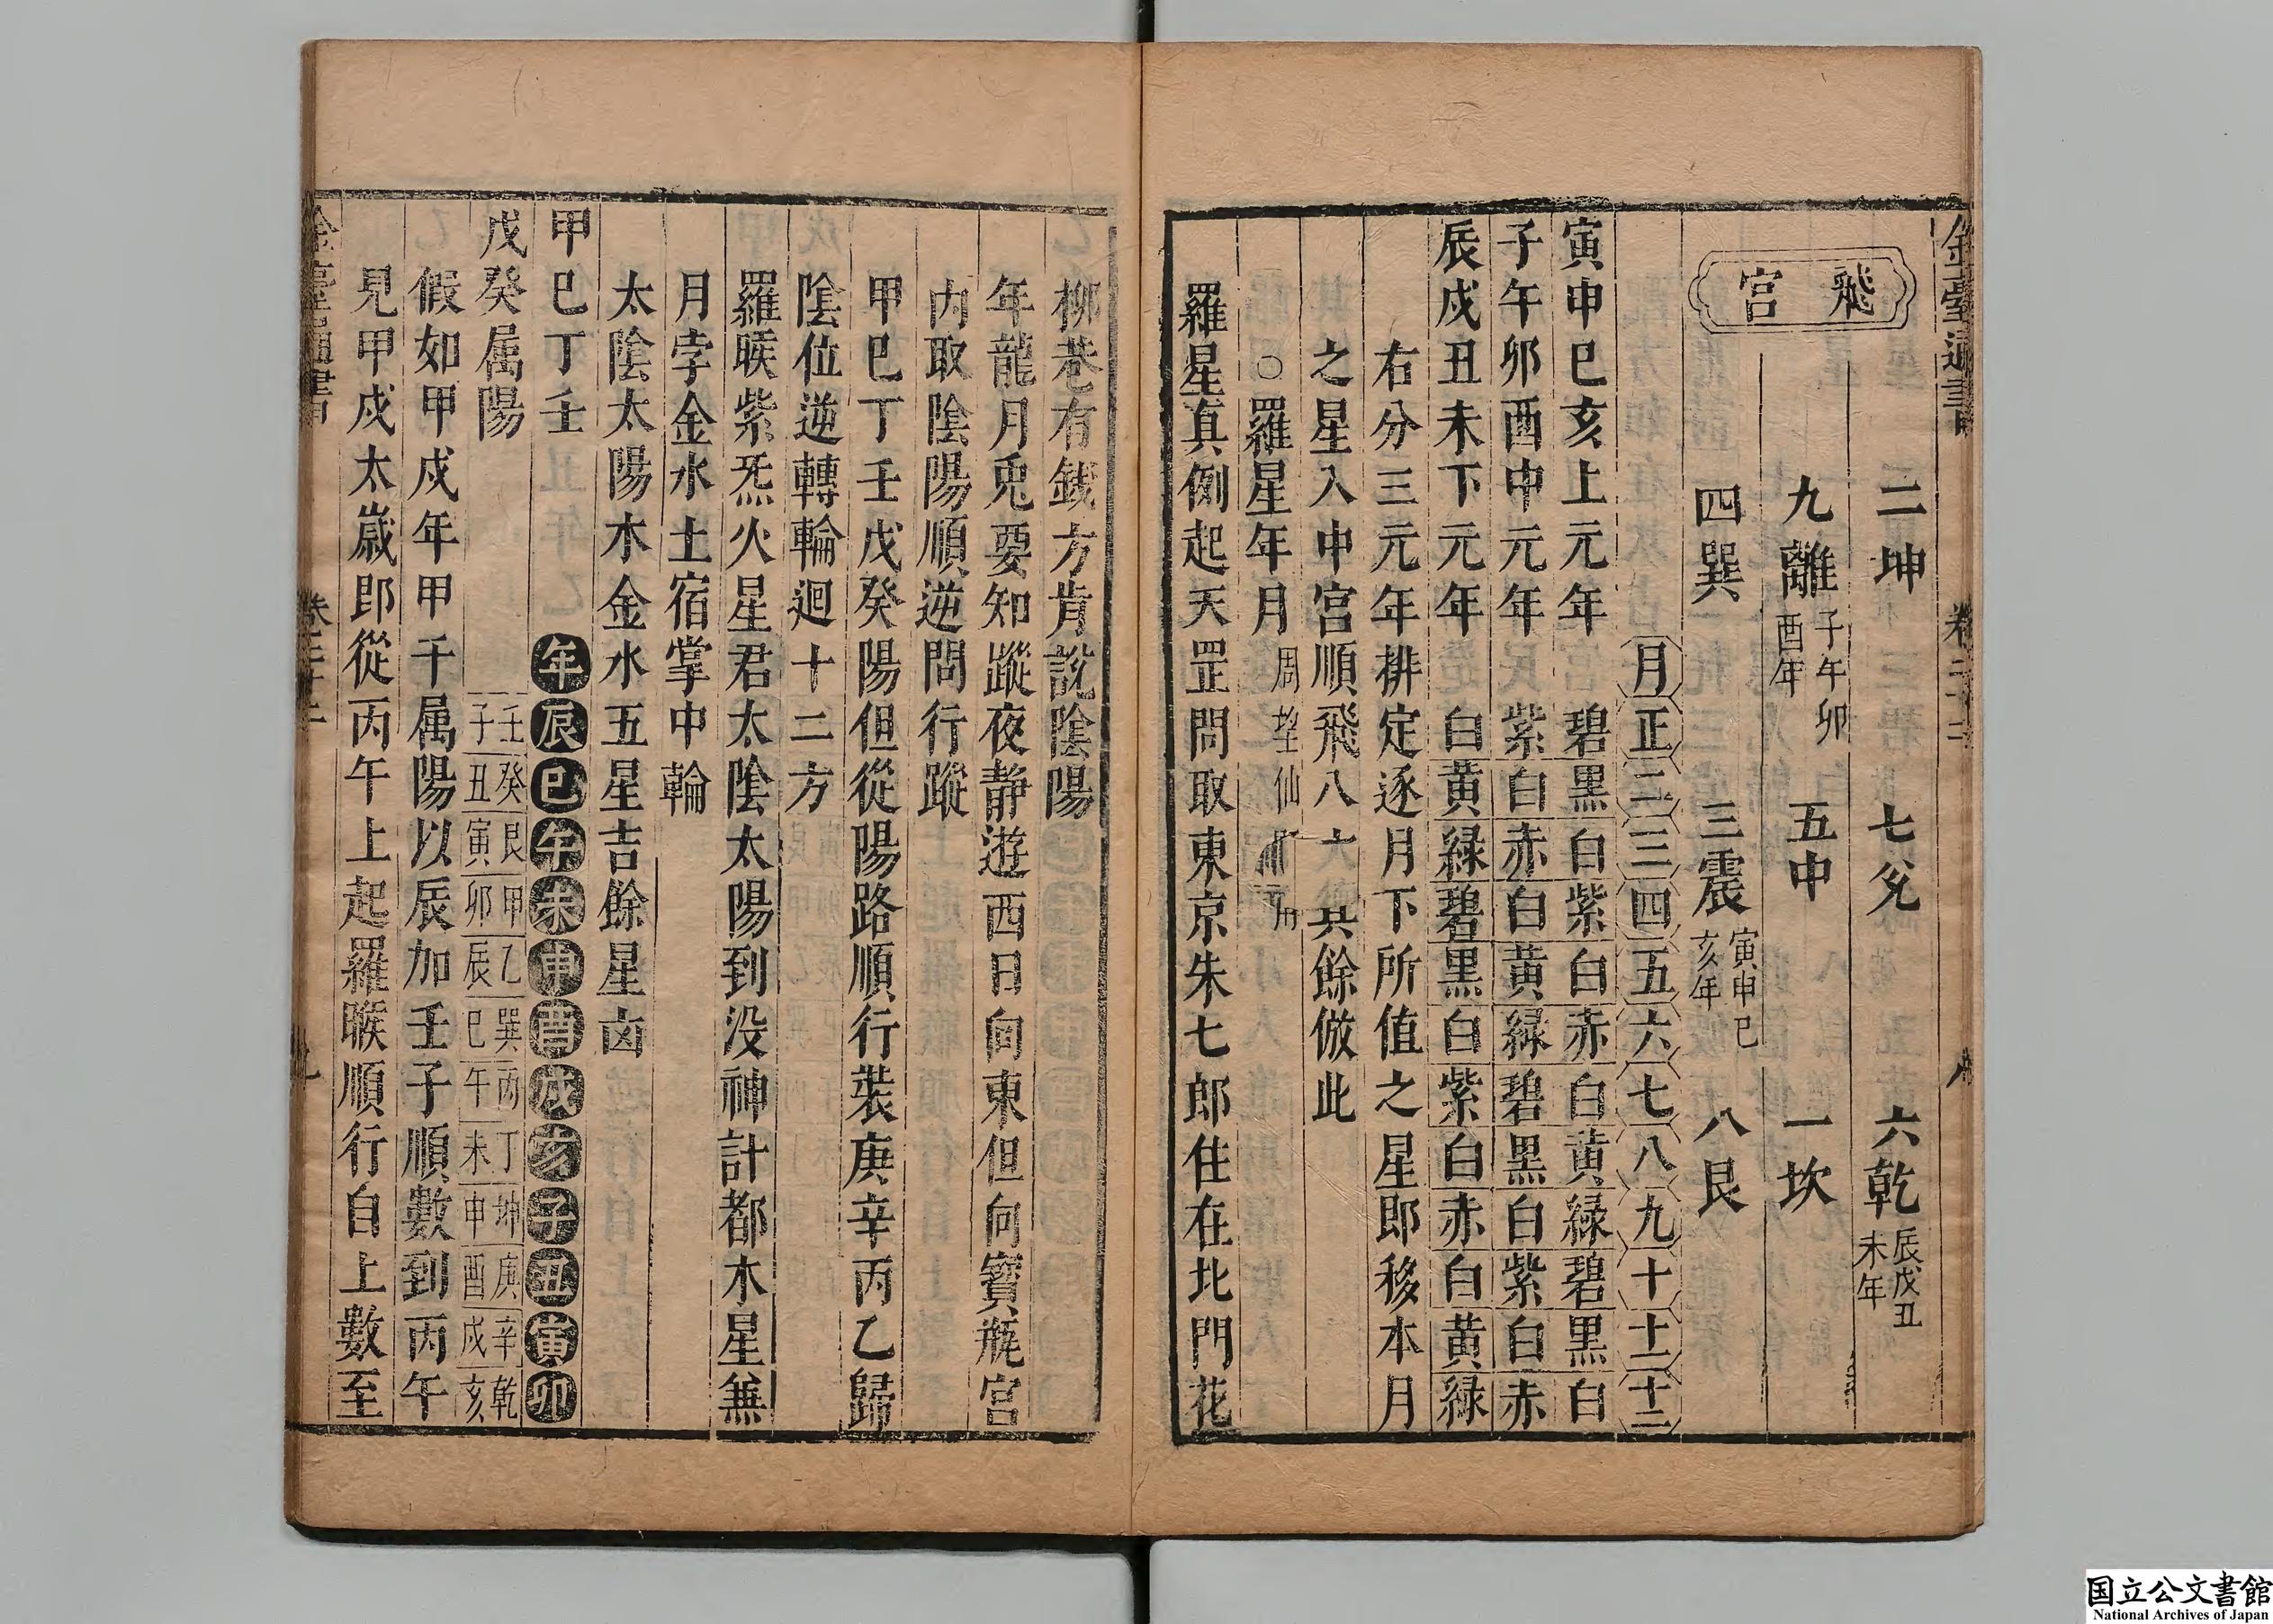 金臺通書 卷二十二
飛宮
二坤 七兌 六乾 辰戌丑未年
九離 子午卯酉年 五中 一坎
四巽 三震 寅申巳亥年 八艮
月 正 二 三 四 五 六 七 八 九 十 十一 十二
寅申巳亥上元年 碧 黑 白 紫 白 赤 白 黃 綠 碧 黑 白
子午卯酉中元年 紫 白 赤 白 黃 綠 碧 黑 白 紫 白 赤
辰戌丑未下元年 白 黃 綠 碧 黑 白 紫 白 赤 白 黃 綠
右分三元年排定逐月下所值之星郎移本月
之星入中宮順飛八 其餘倣此
○羅星年月 周 仙
羅星真例起天罡問取東京朱七郎住在北門花
柳巷有錢方肯說陰陽
年龍月兎要知蹤夜静遊西日向東但向寳瓶宮
内取陰陽順逆問行蹤
甲巳丁壬戊癸陽但從陽路順行裝庚辛丙乙歸
陰位逆轉輪迴十二方
羅睺紫炁火星君太陰太陽到没神計都木星無
月孛金水土宿掌中輪
太陰太陽木金水五星吉餘星凶
甲巳丁壬 年 辰 巳 午 未 申 酉 戌 亥 子 丑 寅 卯
戊癸属陽 壬子 癸丑 艮寅 甲卯 乙辰 巽巳 丙午 丁未 坤申 庚酉 辛戌 乾亥
假如甲戌年甲干属陽以辰加壬子順數到丙午
見甲戌太歲郎從丙午上起羅睺順行自上數至
金臺通書
国立公文書館
National Archives of Japan